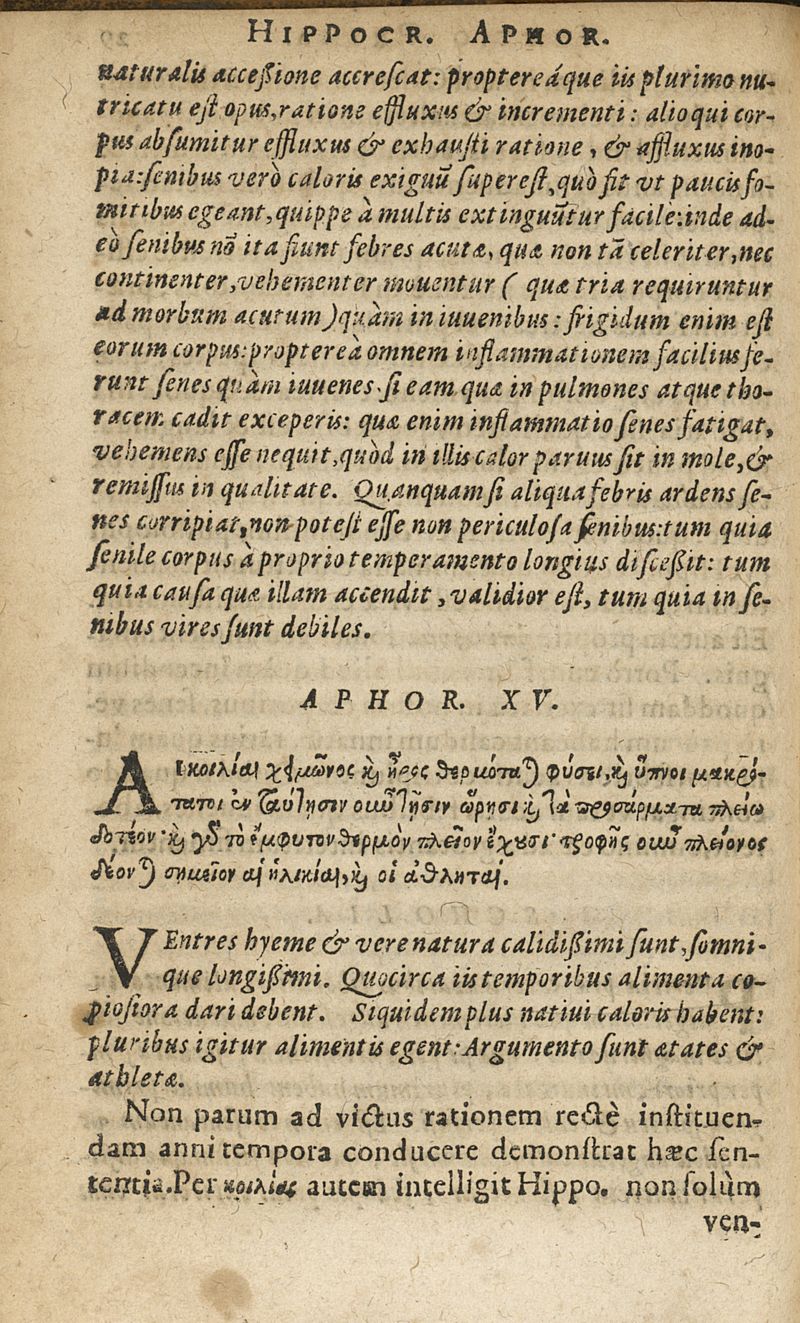 HIPPOCR. APHOR.
naturalis acceßione accrescat: proptereáque iis plurimo nu-
tricatu est opus, ratione effluxus & incrementi: alioqui cor-
pus absumitur effluxus & exhausti ratione, & affluxus ino-
pia: senibus verò caloris exiguũ superest, quò fit vt paucis fo-
mitibus egeant, quippe à multis extinguũtur facile: inde ad-
eò senibus nõ ita fiunt febres acutæ, quæ non tã celeriter, nec
continenter, vehementer mouentur ( quæ tria requiruntur
ad morbum acutum) quàm in iuuenibus: frigidum enim est
eorum corpus: proptereà omnem inflammationem facilius fe-
runt senes quàm iuuenes si eam quæ in pulmones atque tho-
racem cadit exceperis: quæ enim inflammatio senes fatigat,
vehemens esse nequit, quòd in illis calor paruus sit in mole, &
remissus in qualitate. Quanquam si aliqua febris ardens se-
nes corripiat, non potest esse non periculosa senibus: tum quia
senile corpus à proprio temperamento longius disceßit: tum
quia causa quæ illam accendit, validior est, tum quia in se-
nibus vires sunt debiles.
APHOR. XV.
Αἱ κοιλίαι χειμῶνος καὶ ἦρος θερμόταται φύσει, καὶ ὕπνοι μακρό-
τατοι ἐν ταύτῃσιν οὖν τῇσιν ὥρῃσι καὶ τὰ προσάρματα πλείω
δοτέον· καὶ γὰρ τὸ ἔμφυτον θερμὸν πλεῖον ἔχουσι· τροφῆς οὖν πλείονος
δέονται σημεῖον αἱ ἡλικίαι, καὶ οἱ ἀθληταί.
VEntres hyeme & vere natura calidißimi sunt, somni-
que longißimi. Quocirca iis temporibus alimenta co-
piosiora dari debent. Siquidem plus natiui caloris habent:
pluribus igitur alimentis egent: Argumento sunt ætates &
athletæ.
Non parum ad victus rationem rectè instituen-
dam anni tempora conducere demonstrat hæc sen-
tentia. Per κοιλίας autem intelligit Hippo. non solùm
ven-